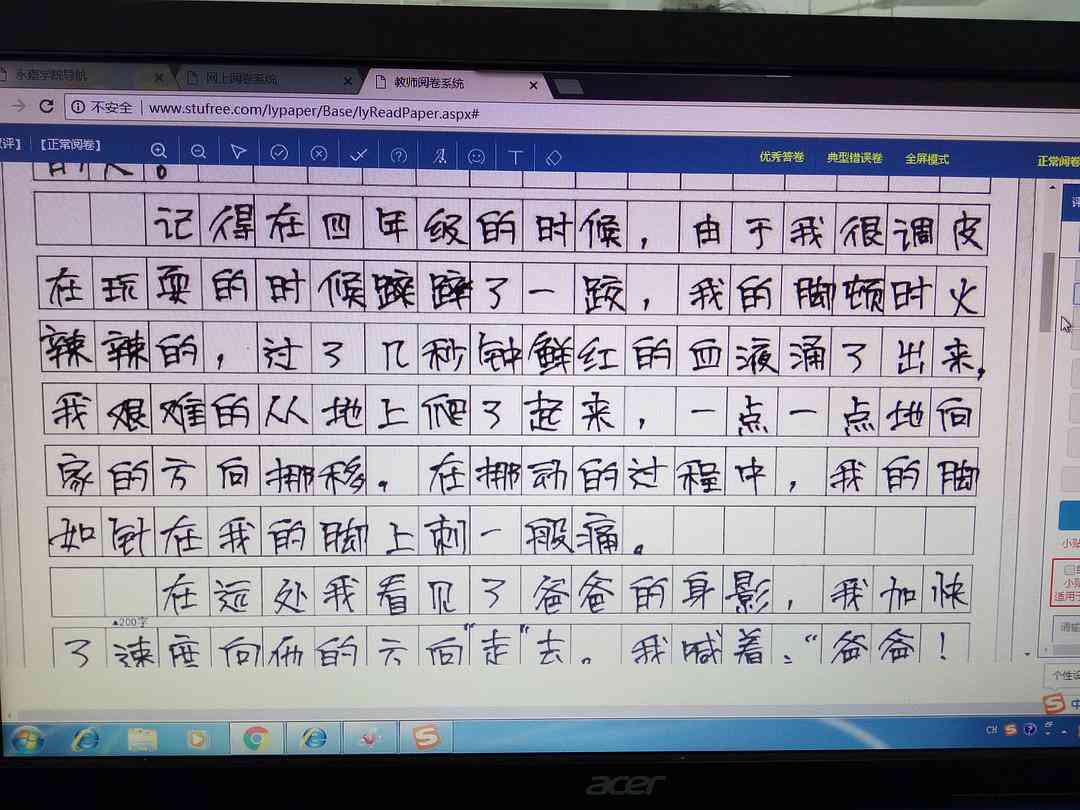 永嘉学院导航
网上阅卷系统
教师阅卷系统
不安全 www.stufree.com/lypaper/Base/lyReadPaper.aspx#
评】【正常阅卷】
优秀答卷 典型错误卷 全屏模式 正常阅卷
的人。
记得在四年级的时候，由于我很调皮
在玩耍的时候蹂蹂了一跤，我的脚顿时火
辣辣的，过了几秒钟鲜红的血液涌了出来，
我艰难的从地上爬了起来，一点一点地向
家的方向挪移。在挪动的过程中，我的脚
如针在我的脚上刺一般痛。
在远处我看见了爸爸的身影，我加快
▲200字
了速度向他的方向“走”去。我喊着：“爸爸！
小贴
小贴
适用于
请输
个性设
中
CH
acer